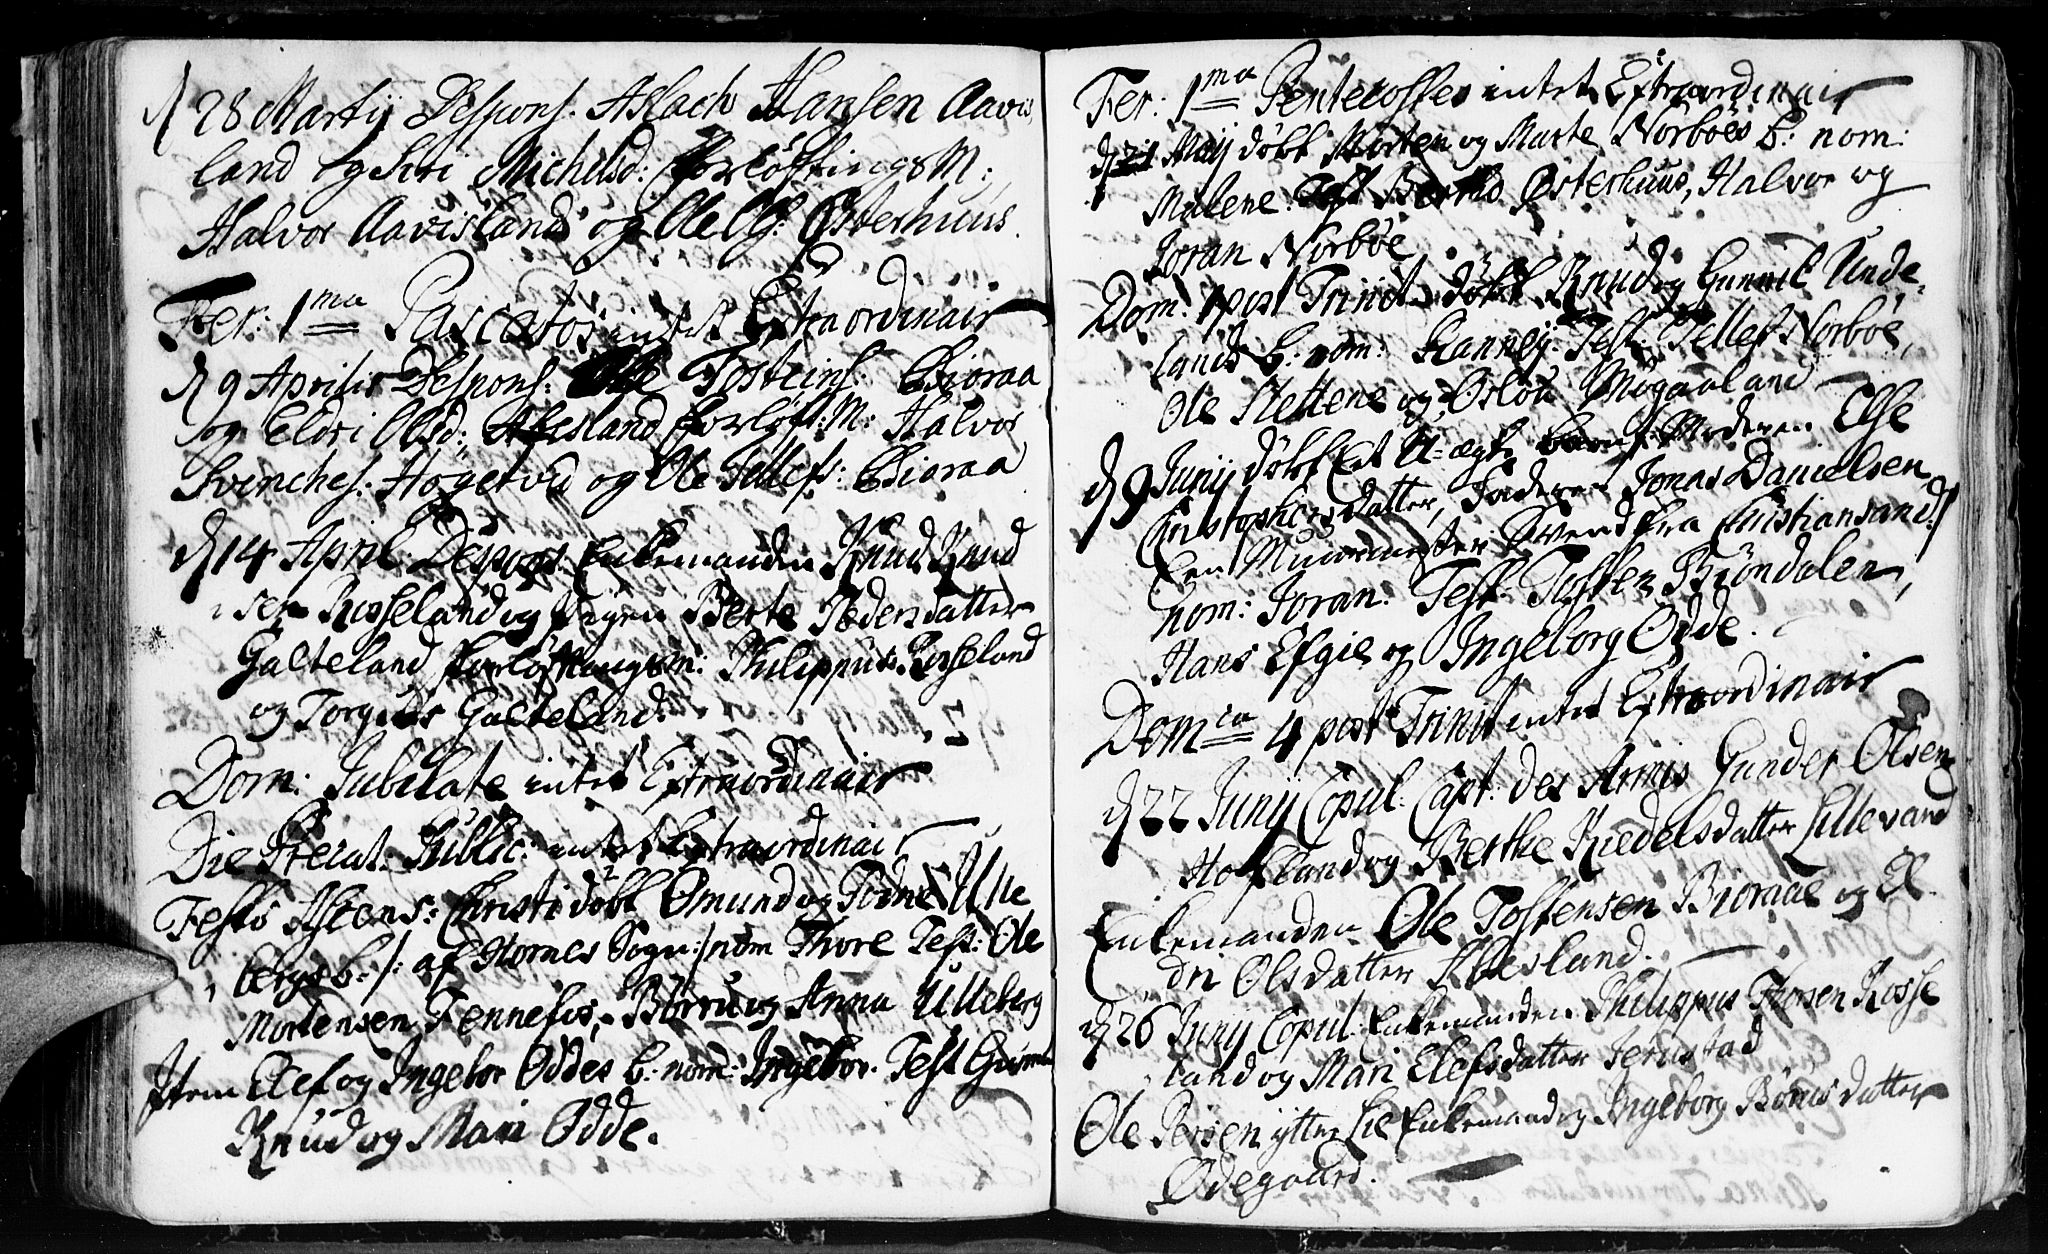 d 28 Martij Despons. Aslach Hansen Aavis
land og Siri Michelsd: Forløftings M:
Halvor Aavisland og Ole Ols: Østerhuus.
Fer: 1ma Pascatos intet Extraordinair
d 9 Aprilis Despons: Ole Tosteins: Bioraa
og Eldri Olsd: Abesland Forløft: M: Halvor
Svinches: Høgetvid og Ole Tellefs: Bioraa
d 14 April Despons: Enkemanden Knud Knud
sen Rosseland og Pigen Berte Pedersdatter
Galteland Forløftningsm: Philippus Rosseland
og Torgius Galteland.
Dom: Jubilate intet Extraordinair
Die Precat. Public: intet Extraordinair
Festo Ascens: Christi døbt Ømund og Todne Ulle
bergs b: /: af Hornes Sogn :/ nom Thore Test: Ole
Mortensen Fennefos, Børru og Anna Ulleberg
Item Elef og Ingebor Oddes b: nom: Ingebor. Test Gunnel
Knud og Mari Odde.
Fer: 1ma Pentecostes intet Extraordinair
d 21 Maij døbt Morten og Marte Norbøes b: nom:
Malene. Test Berthe Østerhuus, Halvor og
Joran Norbøe
Dom: 1 post Trinit. døbt Knud og Gunnil Unde
lands b: nom: Ranney: Test: Tellef Norbøe,
Ole Stettene og Oslou Mügaaland
d 9 Junij døbt Et U-ægte barn: Moderen Else
Christophersdatter, Faderen Jonas Danielsen
Een Muurmester Svend fra Christiansand
nom: Joran. Test. Tosten Brøndalen,
Hans Efgie og Ingeborg Odde.
Domca 4 post Trinit intet Extraordinair
d 22 Junij Copul: Capt: des Armis Gunder Olsen
Hofland og Berthe Kiedelsdatter Lillevand
Enkemanden Ole Tostensen Bioraae og El
dri Olsdatter Abesland.
d 26 Junij Copul: Enkemanden Philippus Thorsen Rosse
land og Mari Elefsdatter Jerustad
Ole Persen ytter Lie Enkemand og Ingeborg Børusdatter
Ødegaard.